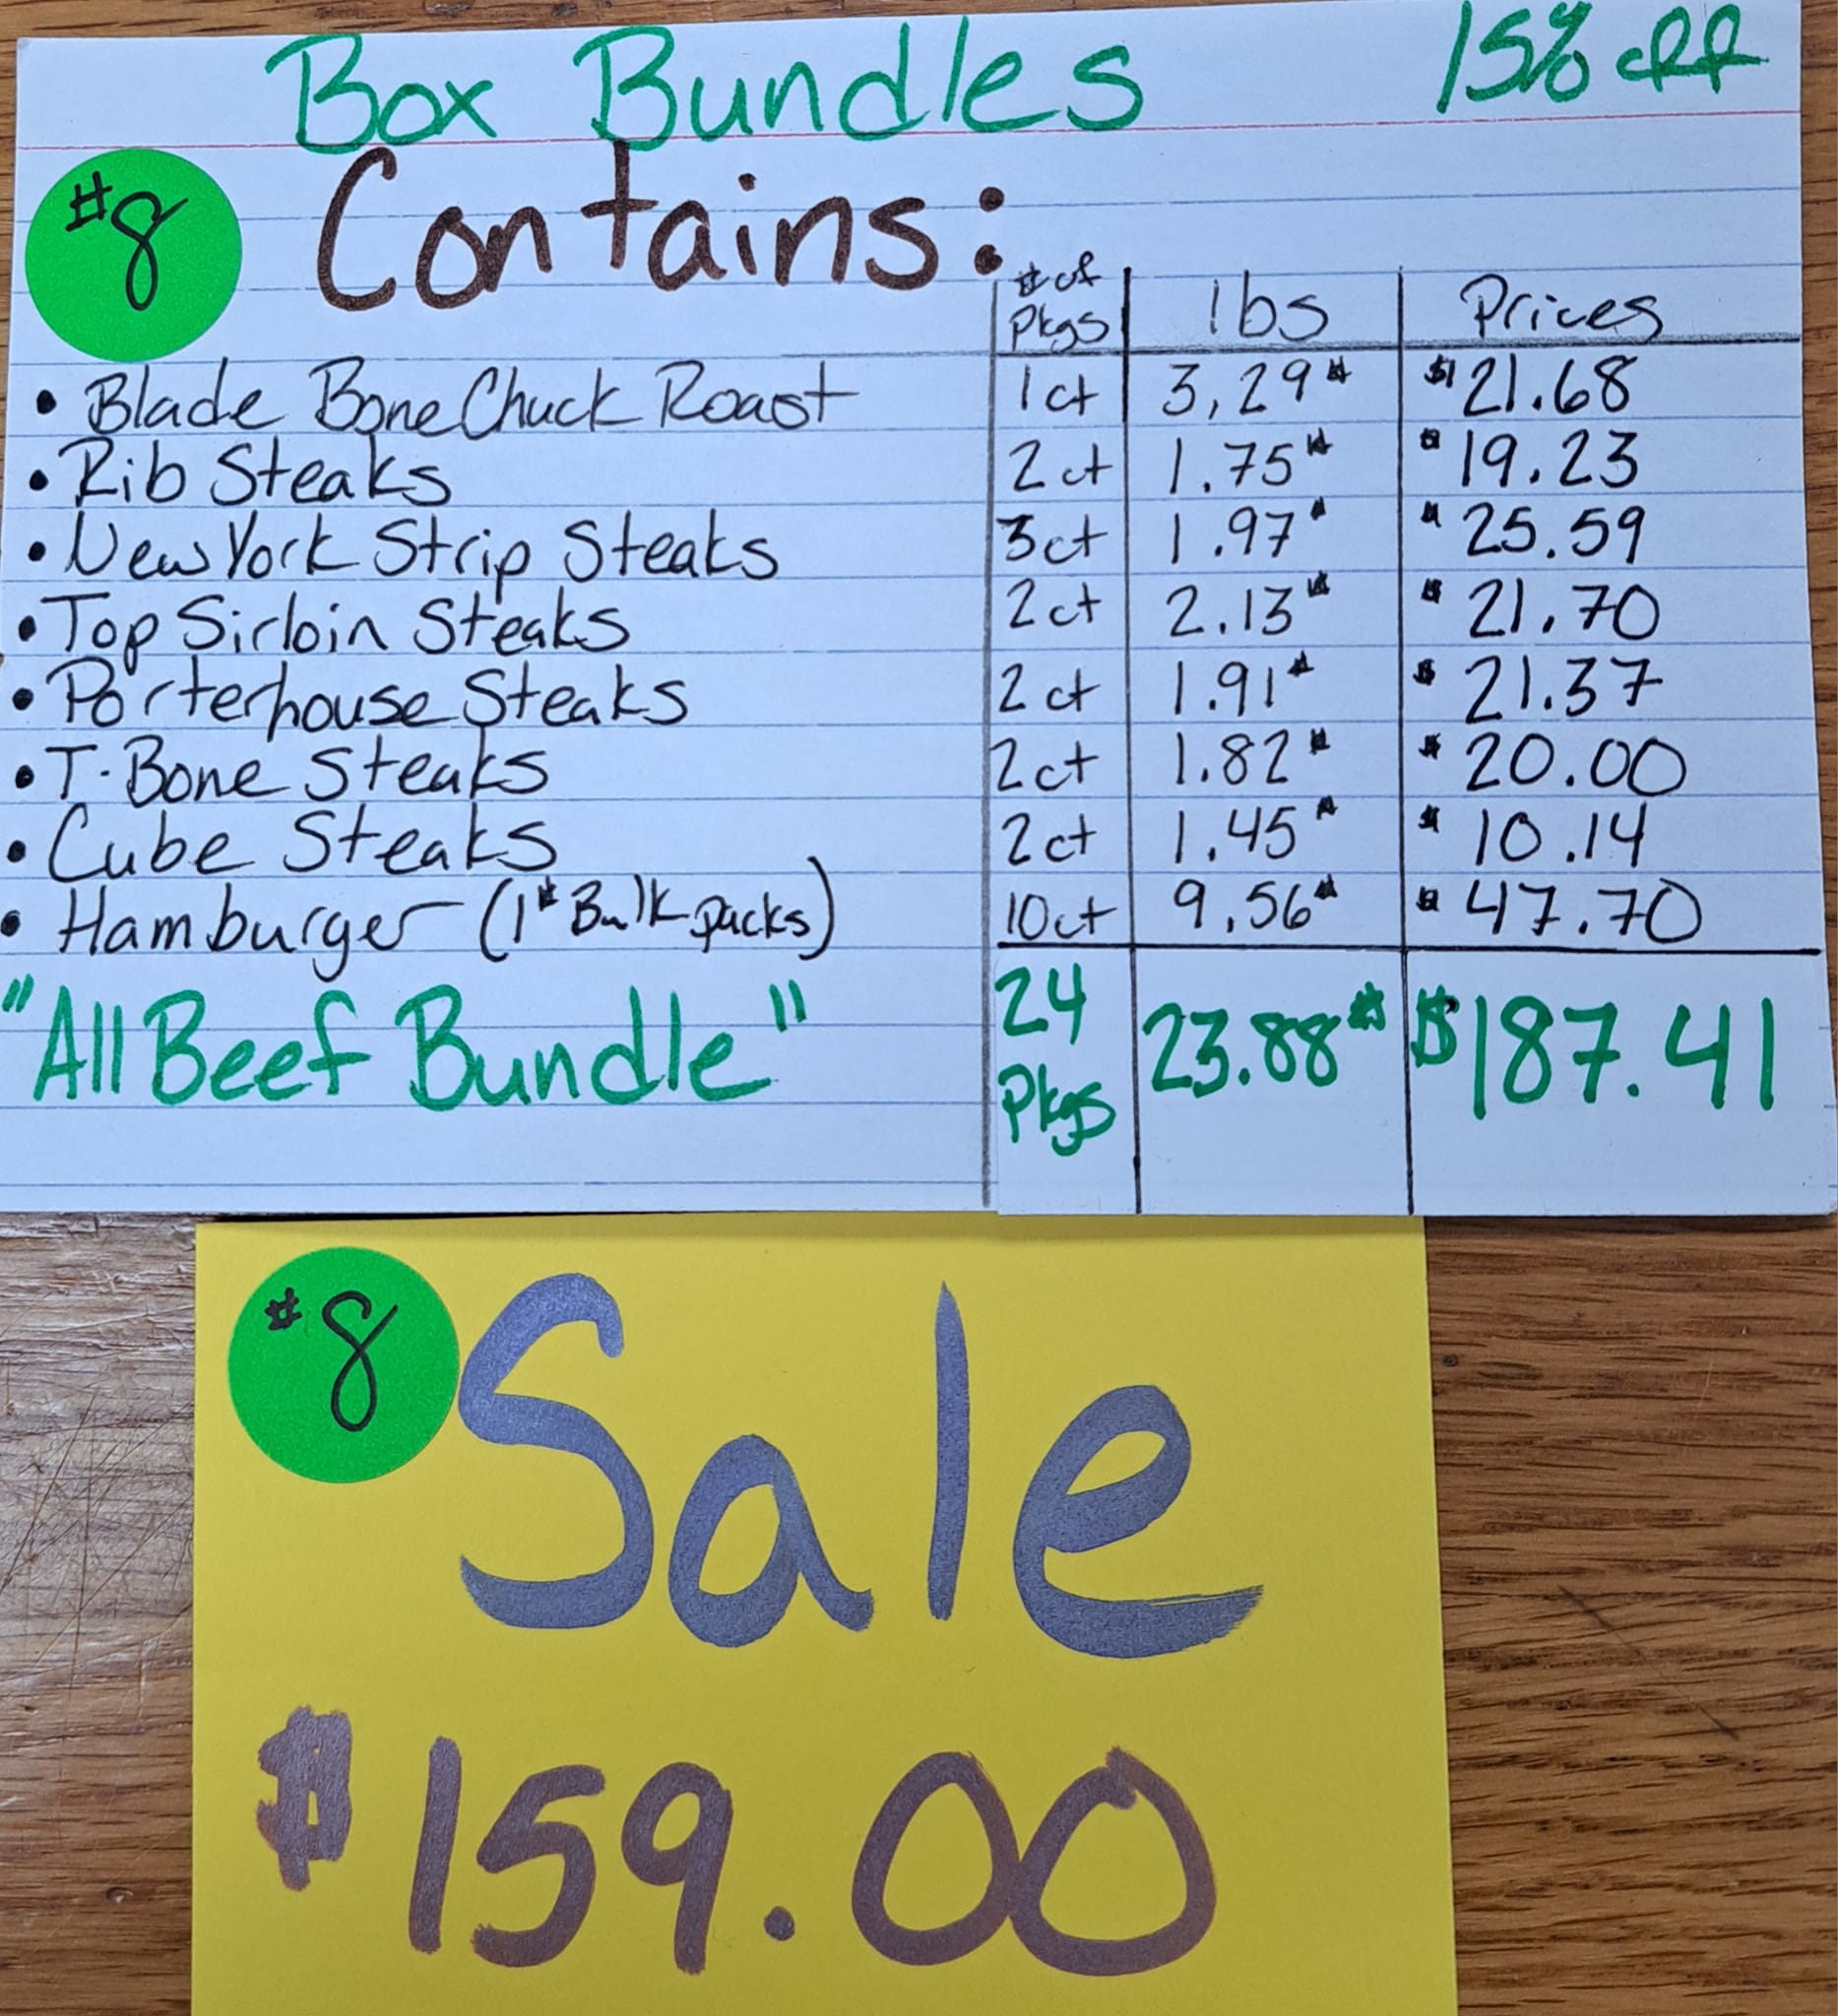 Box Bundles 15% off
#8 Contains:
# of Pkgs lbs Prices
• Blade Bone Chuck Roast 1ct 3.29# $21.68
• Rib Steaks 2ct 1.75# $19.23
• New York Strip Steaks 3ct 1.97# $25.59
• Top Sirloin Steaks 2ct 2.13# $21.70
• Porterhouse Steaks 2ct 1.91# $21.37
• T-Bone Steaks 2ct 1.82# $20.00
• Cube Steaks 2ct 1.45# $10.14
• Hamburger (1# Bulk packs) 10ct 9.56# $47.70
"All Beef Bundle" 24 Pkgs 23.88# $187.41
#8 Sale
$159.00